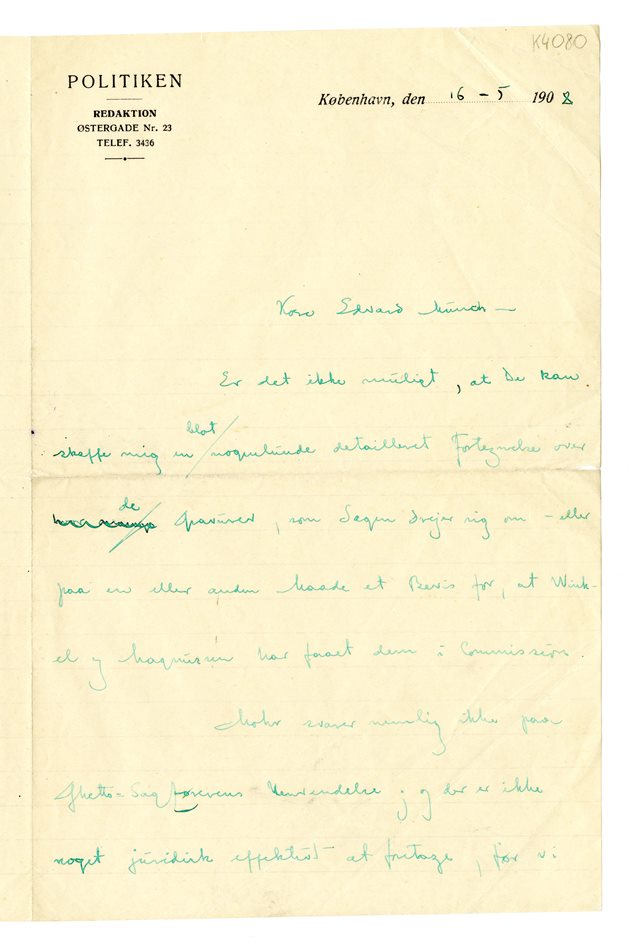 K4080
POLITIKEN
REDAKTION
ØSTERGADE Nr. 23
TELEF. 3436
København, den 16 – 5 1908
Kære Edvard Munch –
Er det ikke muligt, at De kan
blot
skaffe mig en nogenlunde detailleret Fortegnelse over
de
Gravurer, som Sagen drejer sig om – eller
paa en eller anden Maade et Bevis for, at Wink-
el og Magnussen har faaet dem i Commission.
Mohr svarer nemlig ikke paa
Ghetto-Sagførerens Henvendelse; og der er ikke
noget juridisk effektivt at foretage, før vi